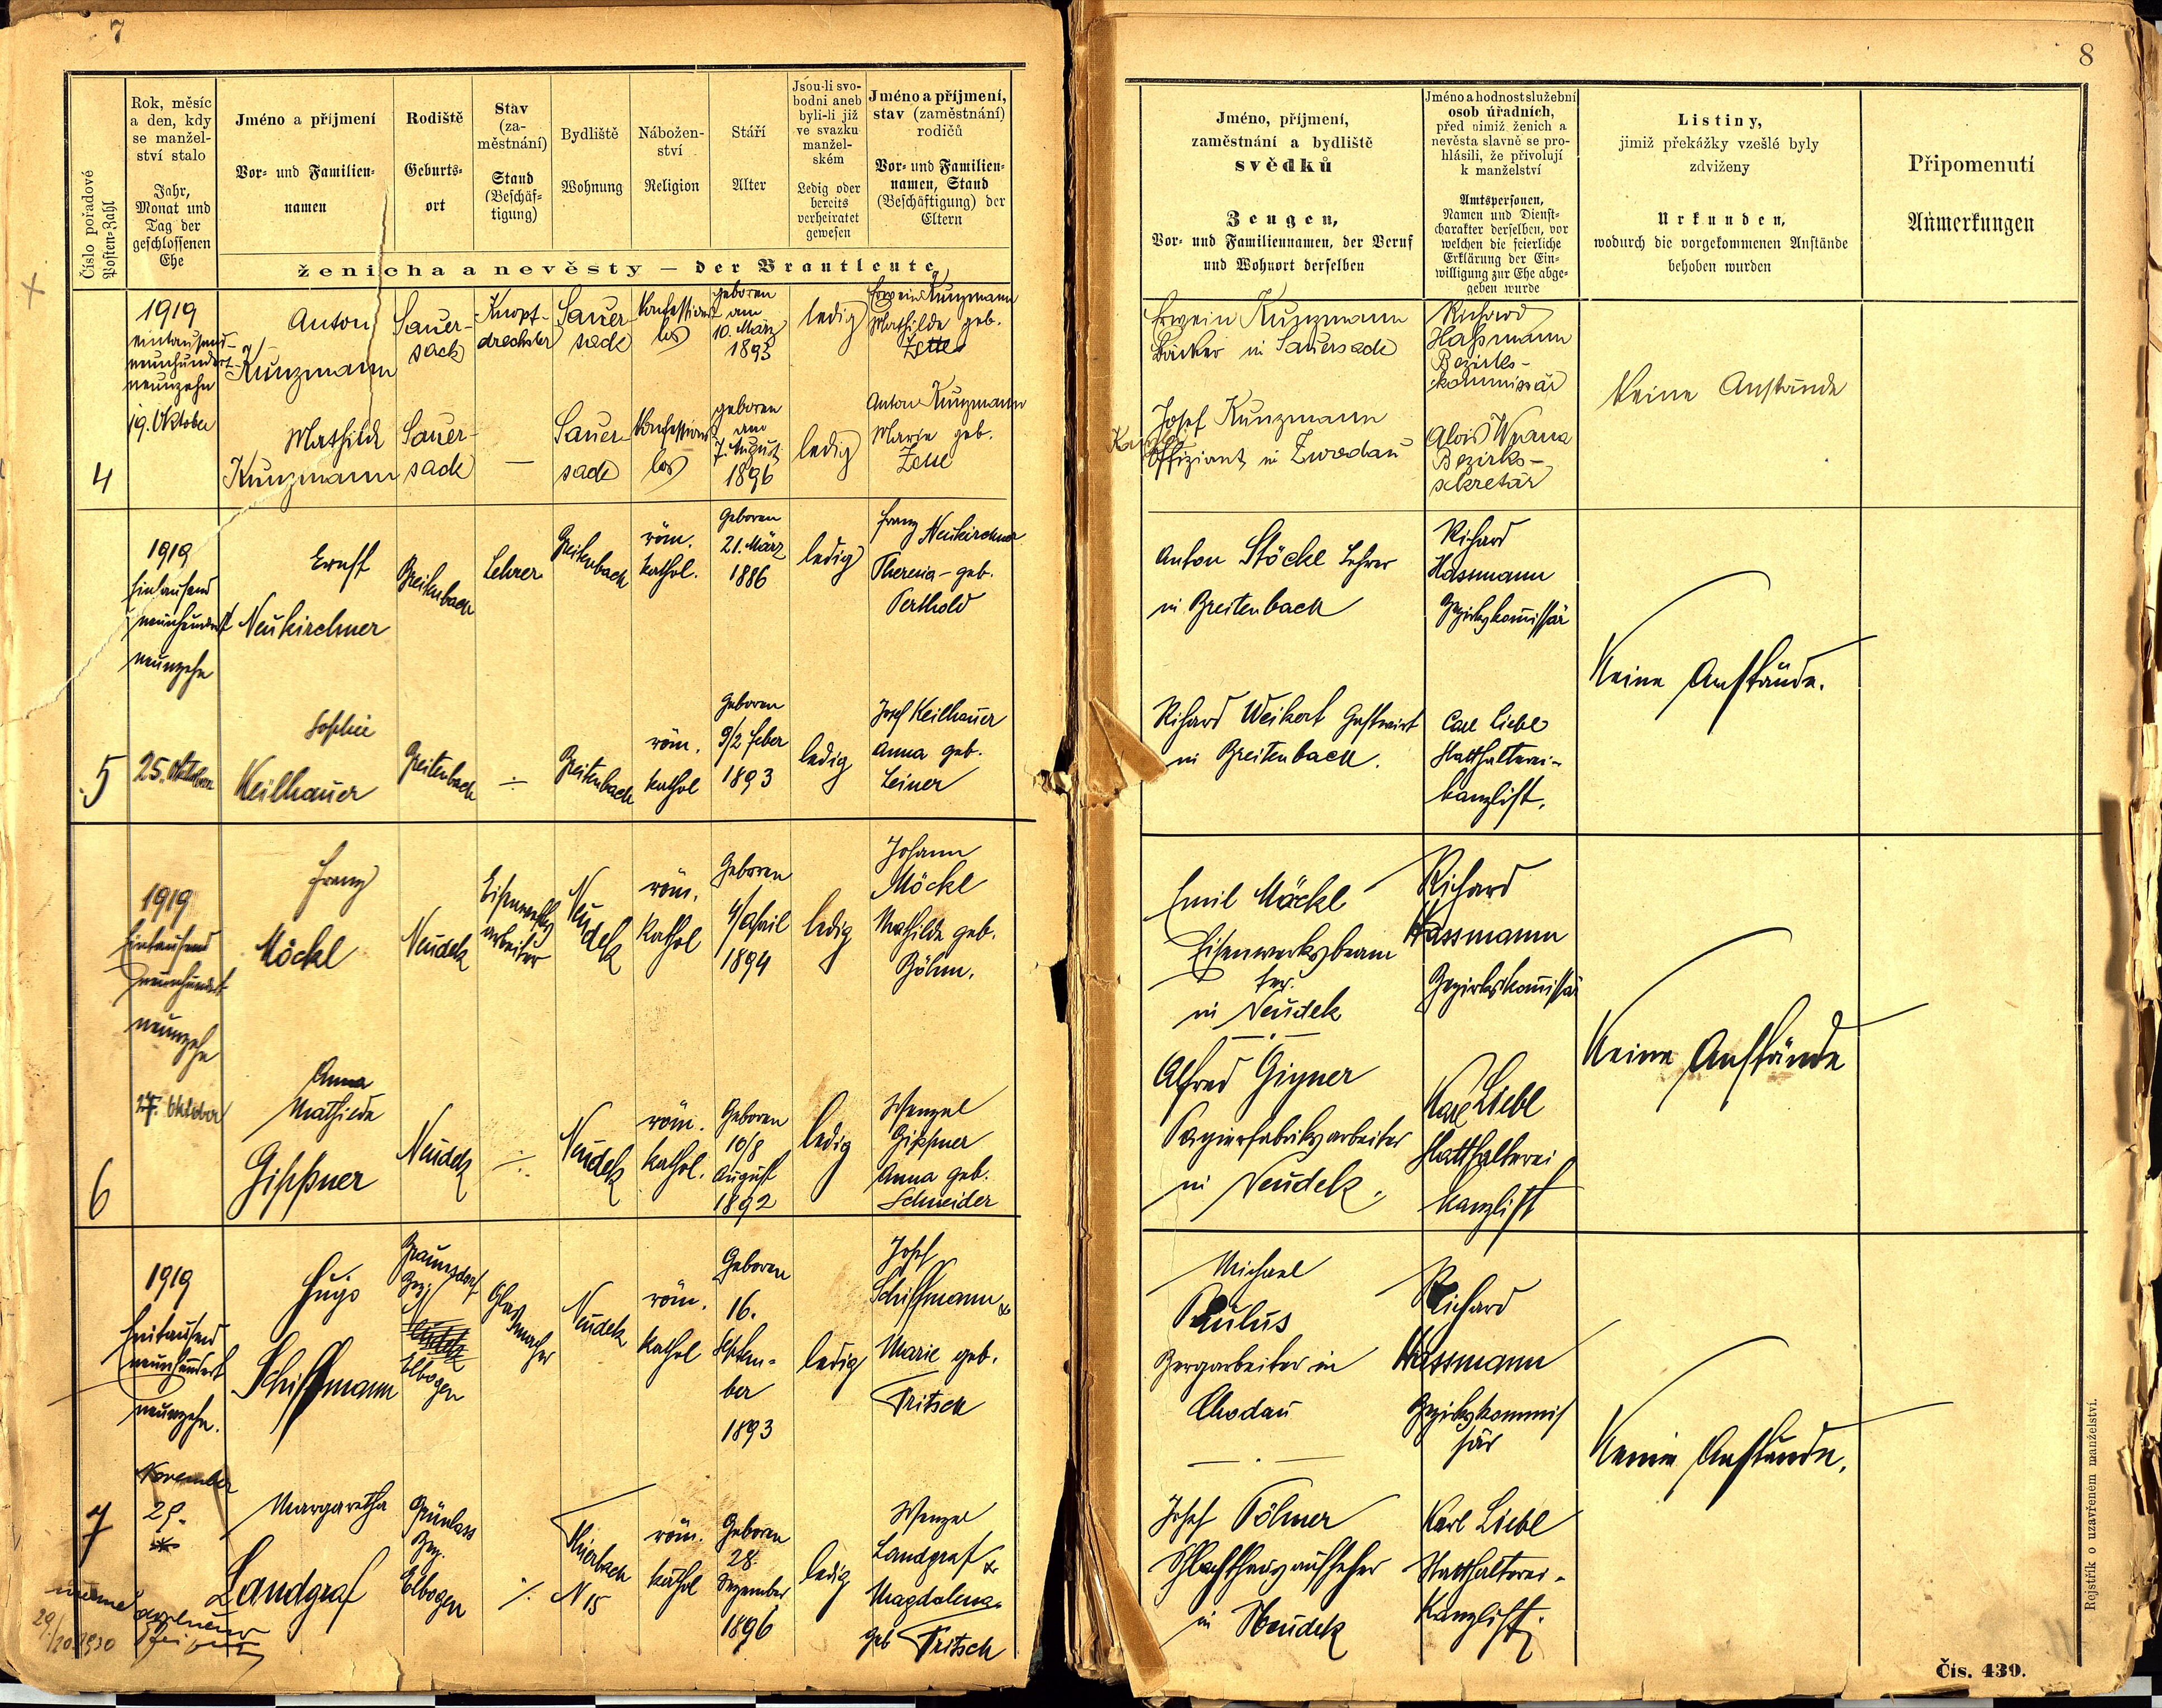 7
Číslo pořadové
Posten-Zahl
Rok, měsíc
a den, kdy
se manžel-
ství stalo
Jahr,
Monat und
Tag der
geschlossenen
Ehe
Jméno a příjmení
Vor- und Familien-
namen
Rodiště
Geburts-
ort
Stav
(za-
městnání)
Stand
(Beschäf-
tigung)
Bydliště
Wohnung
Nábožen-
ství
Religion
Stáří
Alter
Jsou-li svo-
bodni aneb
byli-li již
ve svazku
manžel-
ském
Ledig oder
bereits
verheiratet
gewesen
Jméno a příjmení,
stav (zaměstnání)
rodičů
Vor- und Familien-
namen, Stand
(Beschäftigung) der
Eltern
ženicha a nevěsty — der Brautleute
4
1919
eintausend-
neunhundert-
neunzehn
19. Oktober
Anton
Kunzmann
Sauer-
sack
Knopf-
drechsler
Sauer-
sack
Konfessions-
los
geboren
am
10. März
1893
ledig
Erwein Kunzmann
Mathilde geb.
Zettl
Mathilde
Kunzmann
Sauer-
sack
—
Sauer-
sack
Konfessions-
los
geboren
am
7. August
1896
ledig
Anton Kunzmann
Marie geb.
Zettl
5
1919
Eintausend
neunhundert
neunzehn
25. Oktober
Ernst
Neukirchner
Breitenbach
Lehrer
Breitenbach
röm.
kathol.
Geboren
21. März
1886
ledig
Franz Neukirchner
Theresia - geb.
Perthold
Sophie
Keilhauer
Breitenbach
÷
Breitenbach
röm.
kathol
Geboren
9/2 Feber
1893
ledig
Josef Keilhauer
Anna geb.
Leiner
6
1919
Eintausend
neunhundert
neunzehn
27. Oktober
Franz
Möckl
Neudek
Eisenwerks
arbeiter
Neu
dek
röm.
kathol
Geboren
4/April
1894
ledig
Johann
Möckl
Mathilde geb.
Böhm.
Anna
Mathilde
Gippner
Neudek
÷
Neudek
röm.
kathol.
Geboren
10/8
August
1892
ledig
Wenzel
Gippner
Anna geb.
Schneider
7
1919
Eintausend
neunhundert
neunzehn.
November
29.
Hugo
Schiffmann
Braunsdorf
Bez.
Elbogen
Glas
macher
Neudek
röm.
kathol
Geboren
16.
Septem-
ber
1893
ledig
Josef
Schiffmann &
Marie geb.
Fritsch
Margaretha
Landgraf
Grünlass
Bez.
Elbogen
⁒
Thierbach
N 15
röm.
kathol
Geboren
28.
Dezember
1896
ledig
Wenzel
Landgraf &
Magdalena
geb Fritsch
8
Jméno, příjmení,
zaměstnání a bydliště
svědků
Zeugen,
Vor- und Familiennamen, der Beruf
und Wohnort derselben
Jméno a hodnost služební
osob úředních,
před nimiž ženich a
nevěsta slavně se pro-
hlásili, že přivolují
k manželství
Amtspersonen,
Namen und Dienst-
charakter derselben, vor
welchen die feierliche
Erklärung der Ein-
willigung zur Ehe abge-
geben wurde
Listiny,
jimiž překážky vzešlé byly
zdviženy
Urkunden,
wodurch die vorgekommenen Anstände
behoben wurden
Připomenutí
Anmerkungen
Erwein Kunzmann
Bäcker in Sauersack
Josef Kunzmann
Offiziant in Zwodau
Richard
Hassmann
Bezirks-
kommissär
Alois
Bezirks-
sekretär
Keine Anstände
Anton Stöckl Lehrer
in Breitenbach
Richard Weikert Gastwirt
in Breitenbach.
Richard
Hassmann
Bezirkskomissär
Carl Liebl
Statthalterei-
kanzlist.
Keine Anstände.
Emil Möckl
Eisenwerksbeam
ter.
in Neudek
Alfred Gigner
Papierfabriksarbeiter
in Neudek.
Richard
Hassmann
Bezirkskomissär
Karl Liebl
Statthalterei
kanzlist
Keine Anstände
Michael
Paulus
Bergarbeiter in
Chodau
Josef Pöhner
Schlachthausaufseher
in Neudek
Richard
Hassmann
Bezirkskommis
sär
Karl Liebl
Statthalterei-
Kanzlist.
Keine Anstände.
Rejstřík o uzavřeném manželství.
Čís. 439.